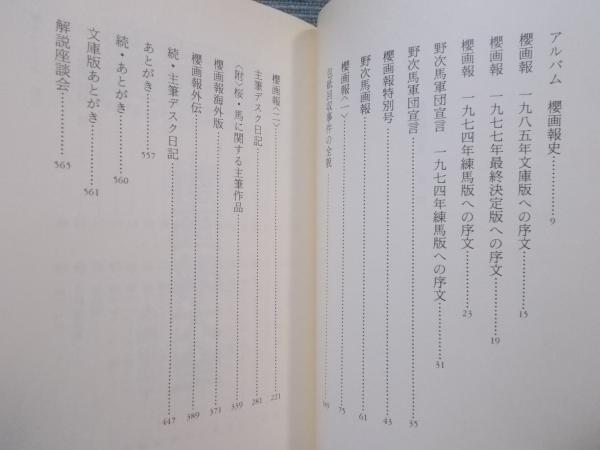 アルバム 櫻画報史…………9
櫻画報 一九八五年文庫版への序文…………15
櫻画報 一九七七年最終決定版への序文…………19
櫻画報 一九七四年練馬版への序文…………23
野次馬軍団宣言 一九七四年練馬版への序文…………31
野次馬軍団宣言…………35
櫻画報特別号…………43
野次馬画報…………61
櫻画報〈一〉…………75
回収事件の全貌…………
櫻画報〈二〉…………221
主筆デスク日記…………281
〈附〉桜・馬に関する主筆作品…………339
櫻画報海外版…………371
櫻画報外伝…………389
続・主筆デスク日記…………447
あとがき…………557
続・あとがき…………560
文庫版あとがき…………561
解説座談会…………565